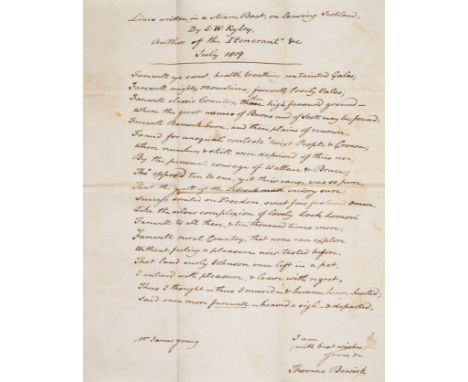 Lines written, in a Steam Boat, on leaving Scotland.
By S. W. Ryley,
Author of the Itenerant" &c
July 1819
Farewell ye sweet, health breathing, untainted Gales,
Farewell mighty Mountains, farewell lovely Vales;
Farewell Classic Country, thou high favoured ground —
Where the great names of Burns and of Scott may be found;
Farewell Bannockburn, and thou plains of renown
Famed for unequal contests 'twixt People & Crown;
When numbers & skill were deprived of their use,
By the personal courage of Wallace & Bruce;
Tho' opposed ten to one, yet their cause was so pure,
That the made victory sure.
Success smiled on Freedom, sweet fair featured
Like the complexion of lovely Loch Lomon
Farewell to all these, & ten thousand times more;
Farewell rural Country, that none can explore
Without feeling a pleasure ne'er tasted before.
That land surly Johnson once left in a pet,
I entered with pleasure, & leave with regret.
Thus I thought — thus I mused — & became
Said once more farewell — heaved a sigh — & departed.
Mr James Young
I am
with best wishes
yours &c
Thomas Bewick